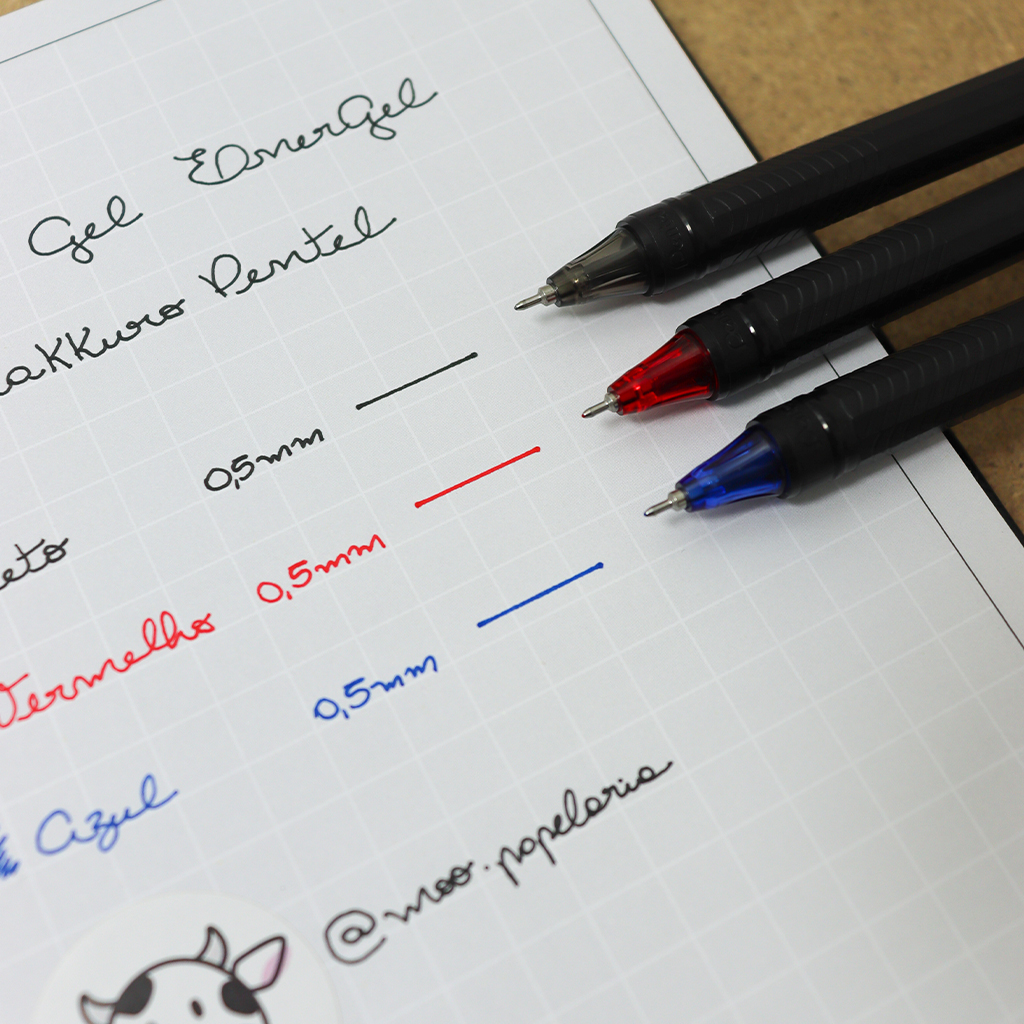 Gel EnerGel
Makkuro Pentel
0,5mm
Vermelho 0,5mm
Azul 0,5mm
@moo.papelaria